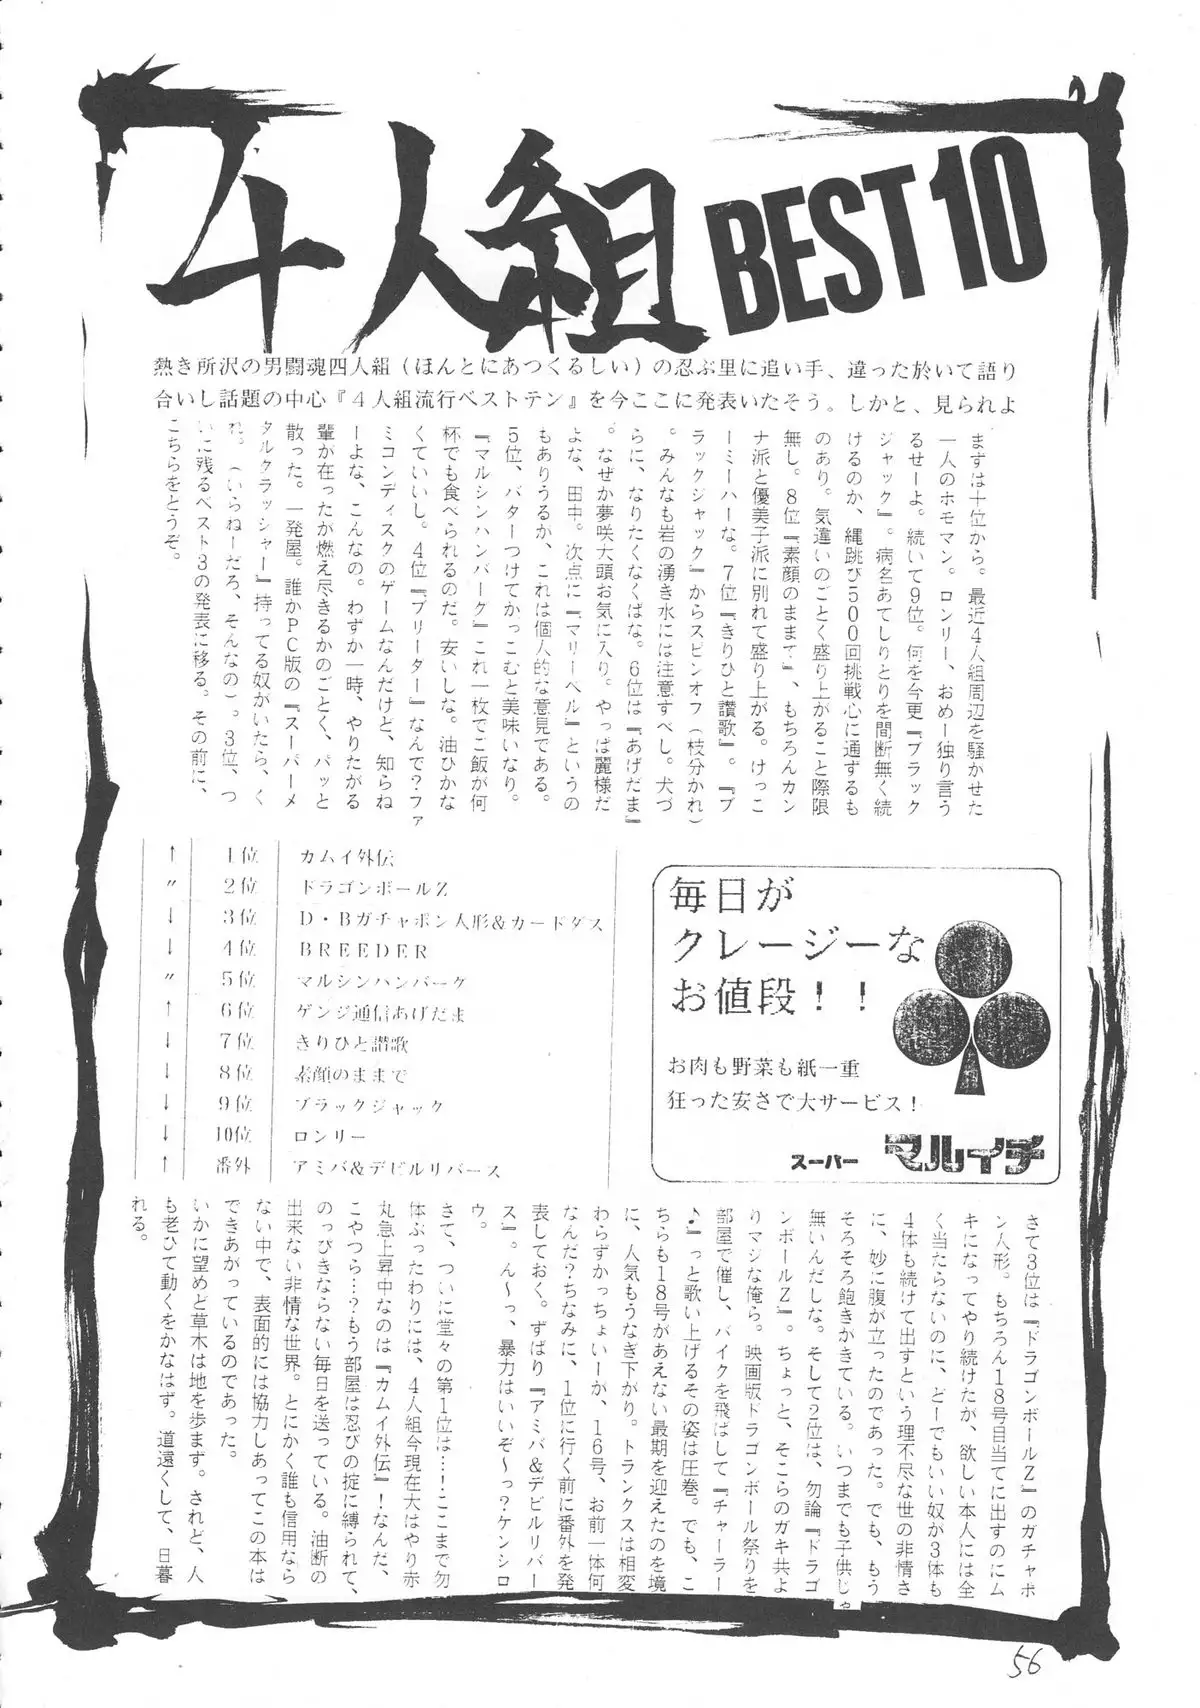 4人組 BEST10
熱き所沢の男闘魂四人組(ほんとにあつくるしい)の忍ぶ里に追い手、違った於いて語り
合いし話題の中心『4人組流行ベストテン』を今ここに発表いたそう。しかと、見られよ
まずは十位から。最近4人組周辺を騒がせた
一人のホモマン。ロンリー、おめー独り言う
るせーよ。続いて9位。何を今更『ブラック
ジャック』。病名あてしりとりを間断無く続
けるのか、縄跳び500回挑戦心に通ずるも
のあり。気違いのごとく盛り上がること際限
無し。8位『素顔のままで』、もちろんカン
ナ派と優美子派に別れて盛り上がる。けっこ
ーミーハーな。7位『きりひと讃歌』。『ブ
ラックジャック』からスピンオフ(枝分かれ)
。みんなも岩の湧き水には注意すべし。犬づ
らに、なりたくなくばな。6位は『あげだま』
。なぜか夢咲大頭お気に入り。やっぱ麗様だ
よな、田中。次点に『マリーベル』というの
もありうるが、これは個人的な意見である。
5位、バターつけてかっこむと美味いなり。
『マルシンハンバーグ』これ一枚でご飯が何
杯でも食べられるのだ。安いしな。油ひかな
くていいし。4位『ブリーダー』なんで?ファ
ミコンディスクのゲームなんだけど、知らね
ーよな、こんなの。わずか一時、やりたがる
輩が在ったが燃え尽きるかのごとく、パッと
散った。一発屋。誰かPC版の『スーパーメ
タルクラッシャー』持ってる奴がいたら、く
れ。(いらねーだろ、そんなの)。3位、つ
いに残るベスト3の発表に移る。その前に、
こちらをとうぞ。
↑ 1位 カムイ外伝
〃 2位 ドラゴンボールZ
↓ 3位 D・Bガチャポン人形&カードダス
↓ 4位 BREEDER
〃 5位 マルシンハンバーグ
↑ 6位 ゲンジ通信あげだま
↓ 7位 きりひと讃歌
↓ 8位 素顔のままで
↓ 9位 ブラックジャック
↓ 10位 ロンリー
↑ 番外 アミバ&デビルリバース
毎日が
クレージーな
お値段!!
お肉も野菜も紙一重
狂った安さで大サービス!
スーパー マルイチ
さて3位は『ドラゴンボールZ』のガチャポ
ン人形。もちろん18号目当てに出すのにム
キになってやり続けたが、欲しい本人には全
く当たらないのに、どーでもいい奴が3体も
4体も続けて出すという理不尽な世の非情さ
に、妙に腹が立ったのであった。でも、もう
そろそろ飽きかきている。いつまでも子供じゃ
無いんだしな。そして2位は、勿論『ドラゴ
ンボールZ』。ちょっと、そこらのガキ共よ
りマジな俺ら。映画版ドラゴンボール祭りを
部屋で催し、バイクを飛ばして『チャーラー
♪』っと歌い上げるその姿は圧巻。でも、こ
ちらも18号があえない最期を迎えたのを境
に、人気もうなぎ下がり。トランクスは相変
わらずかっちょいーが、16号、お前一体何
なんだ?ちなみに、1位に行く前に番外を発
表しておく。ずばり『アミバ&デビルリバー
ス』。ん〜っ、暴力はいいぞ〜っ?ケンシロ
ウ。
さて、ついに堂々の第1位は…!ここまで勿
体ぶったわりには、4人組今現在大はやり赤
丸急上昇中なのは『カムイ外伝』!なんだ、
こやつら…?もう部屋は忍びの掟に縛られて、
のっぴきならない毎日を送っている。油断の
出来ない非情な世界。とにかく誰も信用なら
ない中で、表面的には協力しあってこの本は
できあがっているのであった。
いかに望めど草木は地を歩まず。されど、人
も老ひて動くをかなはず。道遠くして、日暮
れる。
56